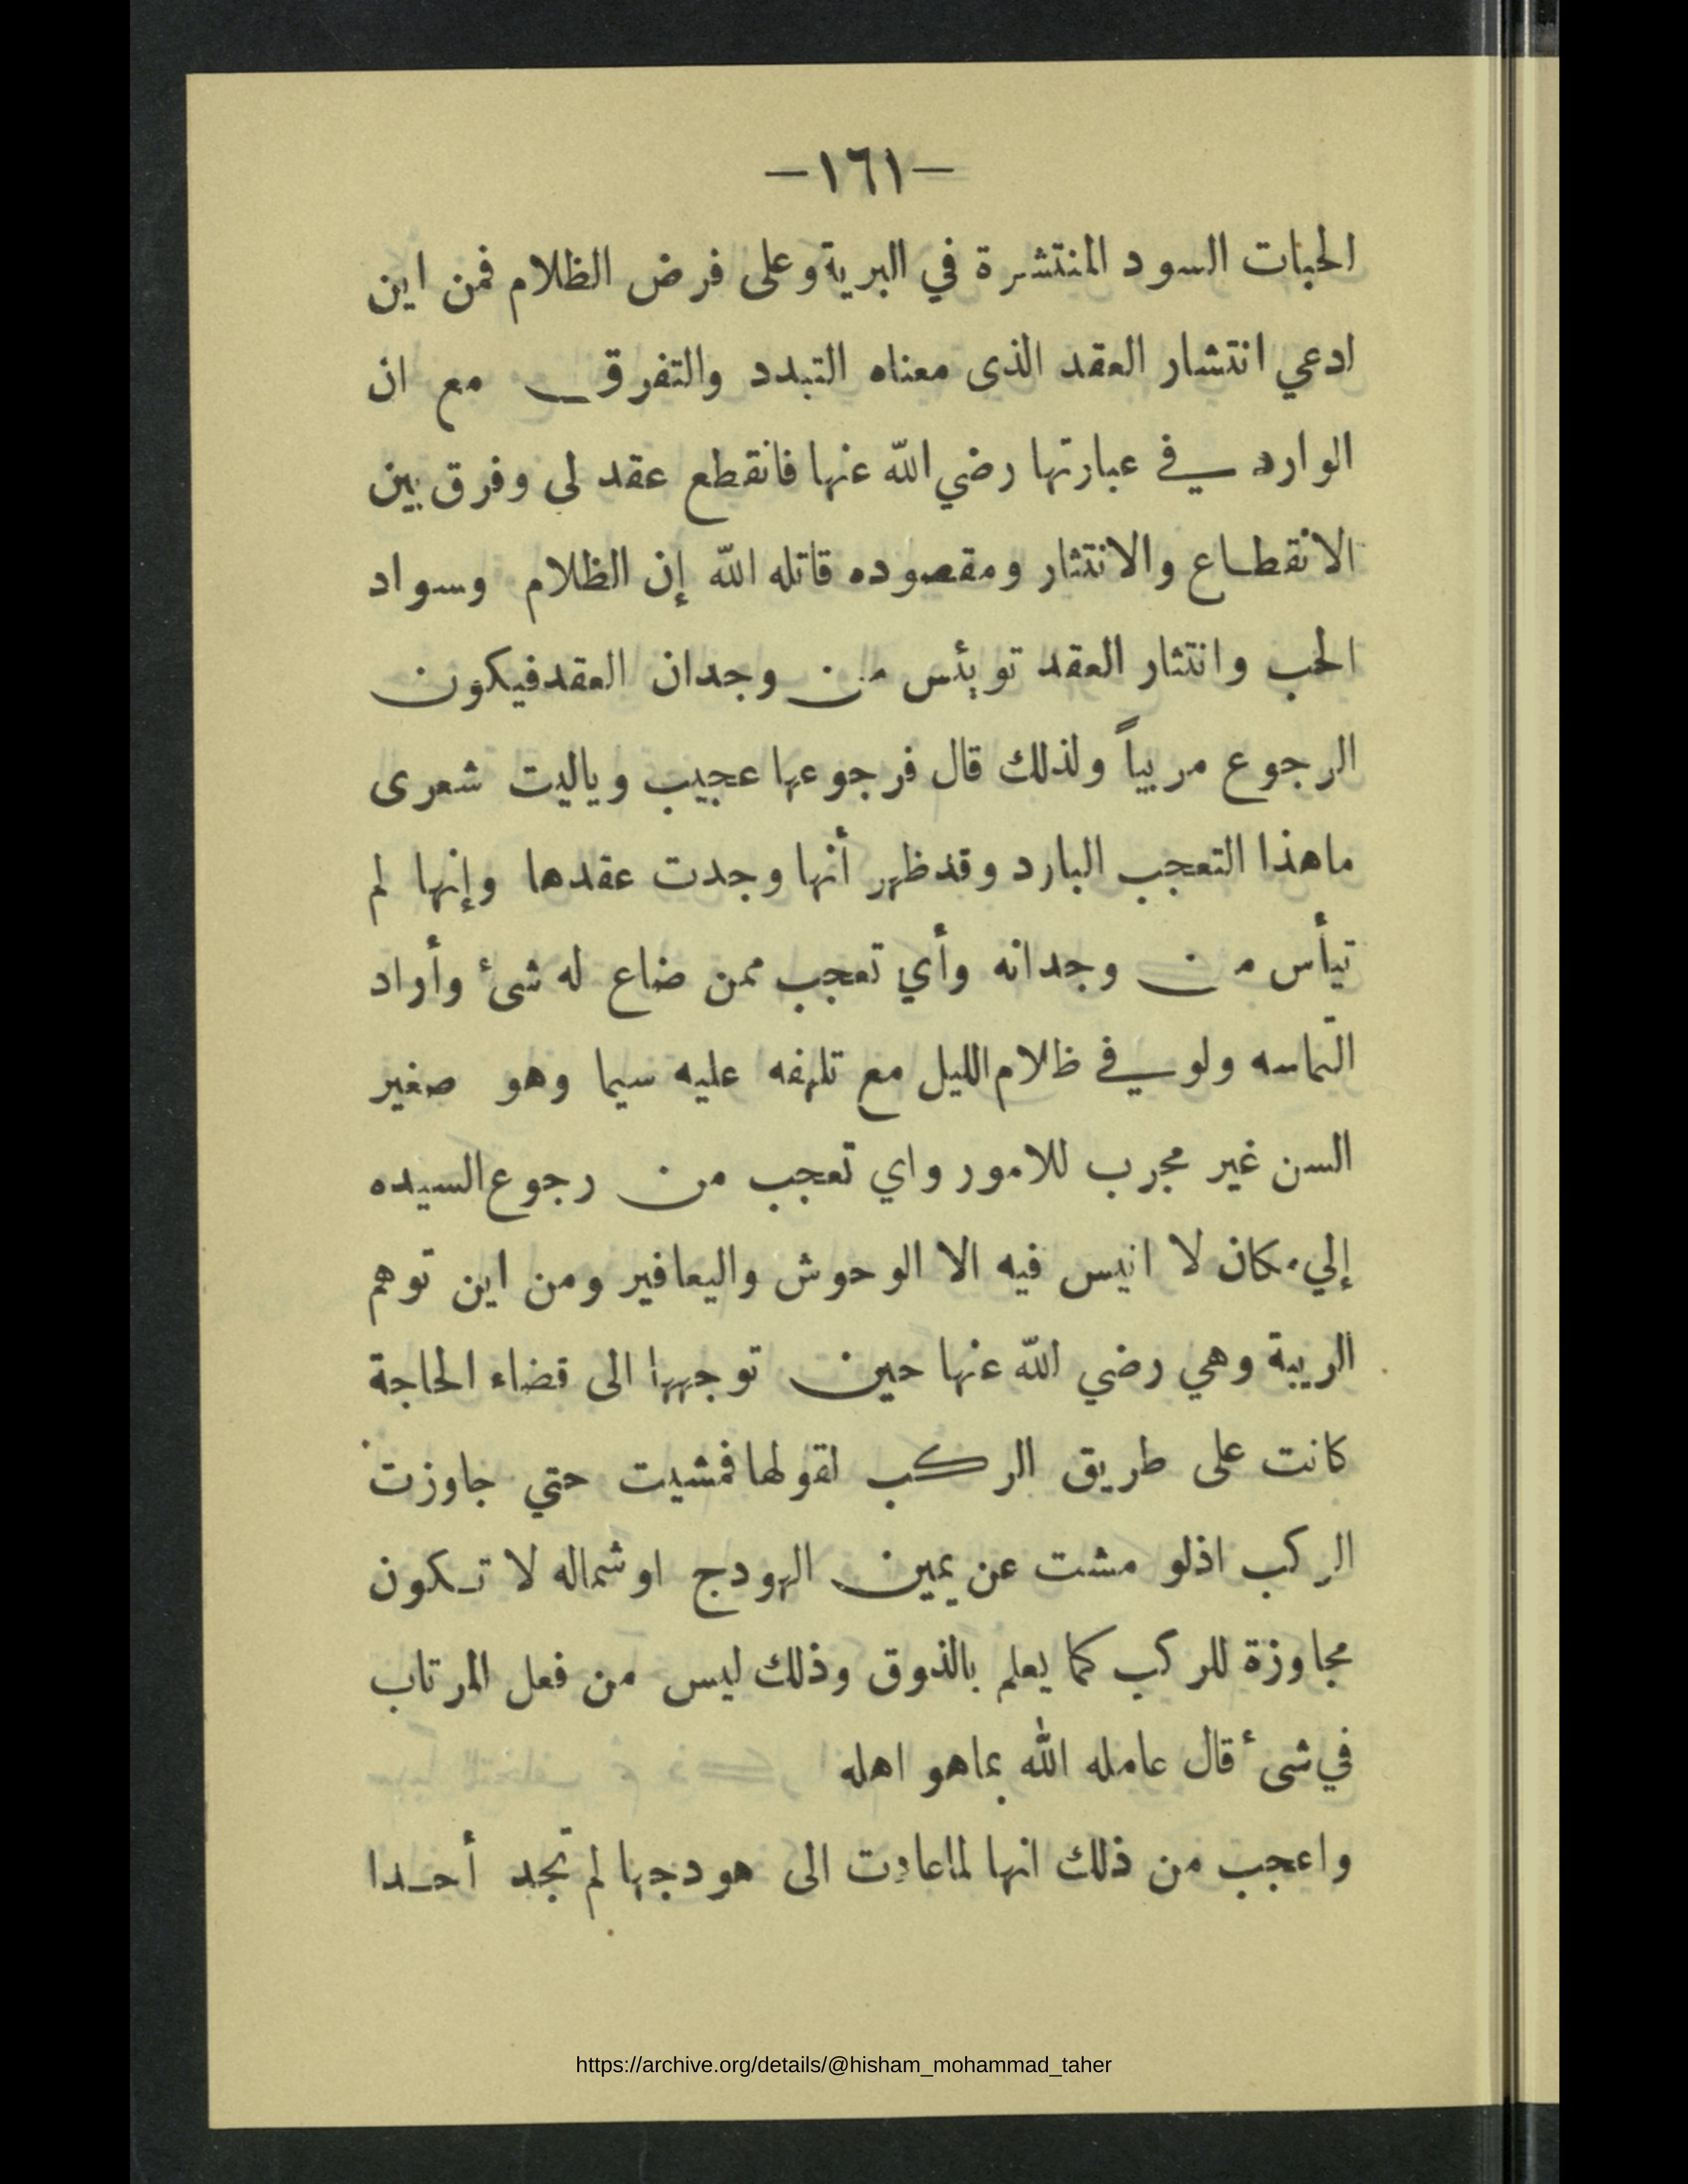 —١٦١—
الحبات السود المنتشرة في البرية وعلى فرض الظلام فمن اين
ادعي انتشار العقد الذى معناه التبدد والتفرق مع ان
الوارد في عبارتها رضي الله عنها فانقطع عقد لى وفرق بين
الانقطاع والانتثار ومقصوده قاتله الله إن الظلام وسواد
الحب وانتثار العقد توئيس من وجدان العقد فيكون
الرجوع مريباً ولذلك قال فرجوعها عجيب وياليت شعرى
ماهذا التعجب البارد وقد ظهر أنها وجدت عقدها وإنها لم
تيأس من وجدانه وأي تعجب ممن ضاع له شئ وأراد
التماسه ولو في ظلام الليل مع تلهفه عليه سيما وهو صغير
السن غير مجرب للامور واي تعجب من رجوع السيده
إلي مكان لا انيس فيه الا الوحوش واليعافير ومن اين توهم
الريبة وهي رضي الله عنها حين توجهها الى قضاء الحاجة
كانت على طريق الركب لقولها فمشيت حتي جاوزت
الركب اذلو مشت عن يمين الهودج اوشماله لا تكون
مجاوزة للركب كما يعلم بالذوق وذلك ليس من فعل المرتاب
في شئ قال عامله الله بماهو اهله
واعجب من ذلك انها لما عادت الى هودجها لم تجد أحدا
https://archive.org/details/@hisham_mohammad_taher